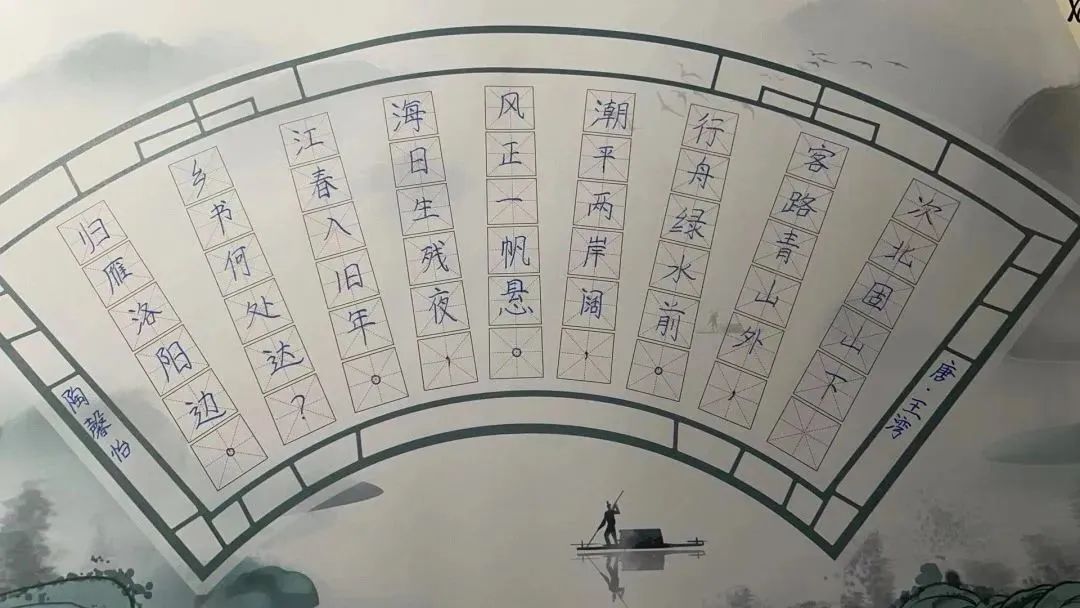 次北固山下
唐·王湾
客路青山外，
行舟绿水前。
潮平两岸阔，
风正一帆悬。
海日生残夜，
江春入旧年。
乡书何处达？
归雁洛阳边。
陶馨怡